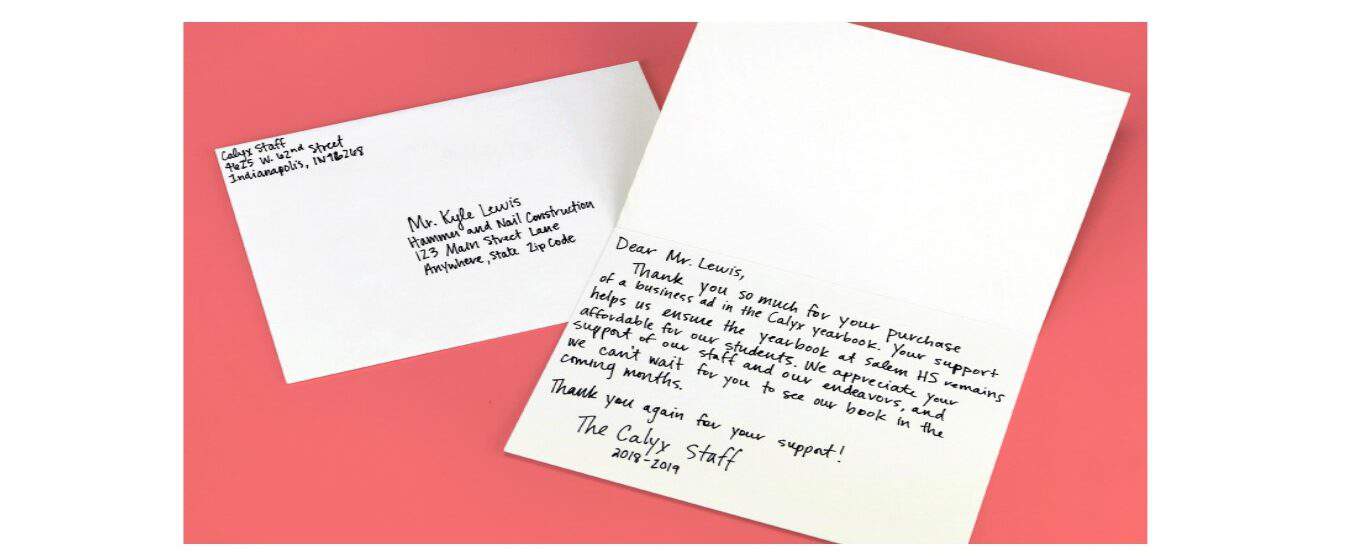 Calyx Staff
4625 W. 62nd Street
Indianapolis, IN 46268
Mr. Kyle Lewis
Hammer and Nail Construction
123 Main Street Lane
Anywhere, State Zip Code
Dear Mr. Lewis,
Thank you so much for your purchase
of a business ad in the Calyx yearbook. Your support
helps us ensure the yearbook at Salem HS remains
affordable for our students. We appreciate your
support of our staff and our endeavors, and
we can't wait for you to see our book in the
coming months.
Thank you again for your support!
The Calyx Staff
2018-2019